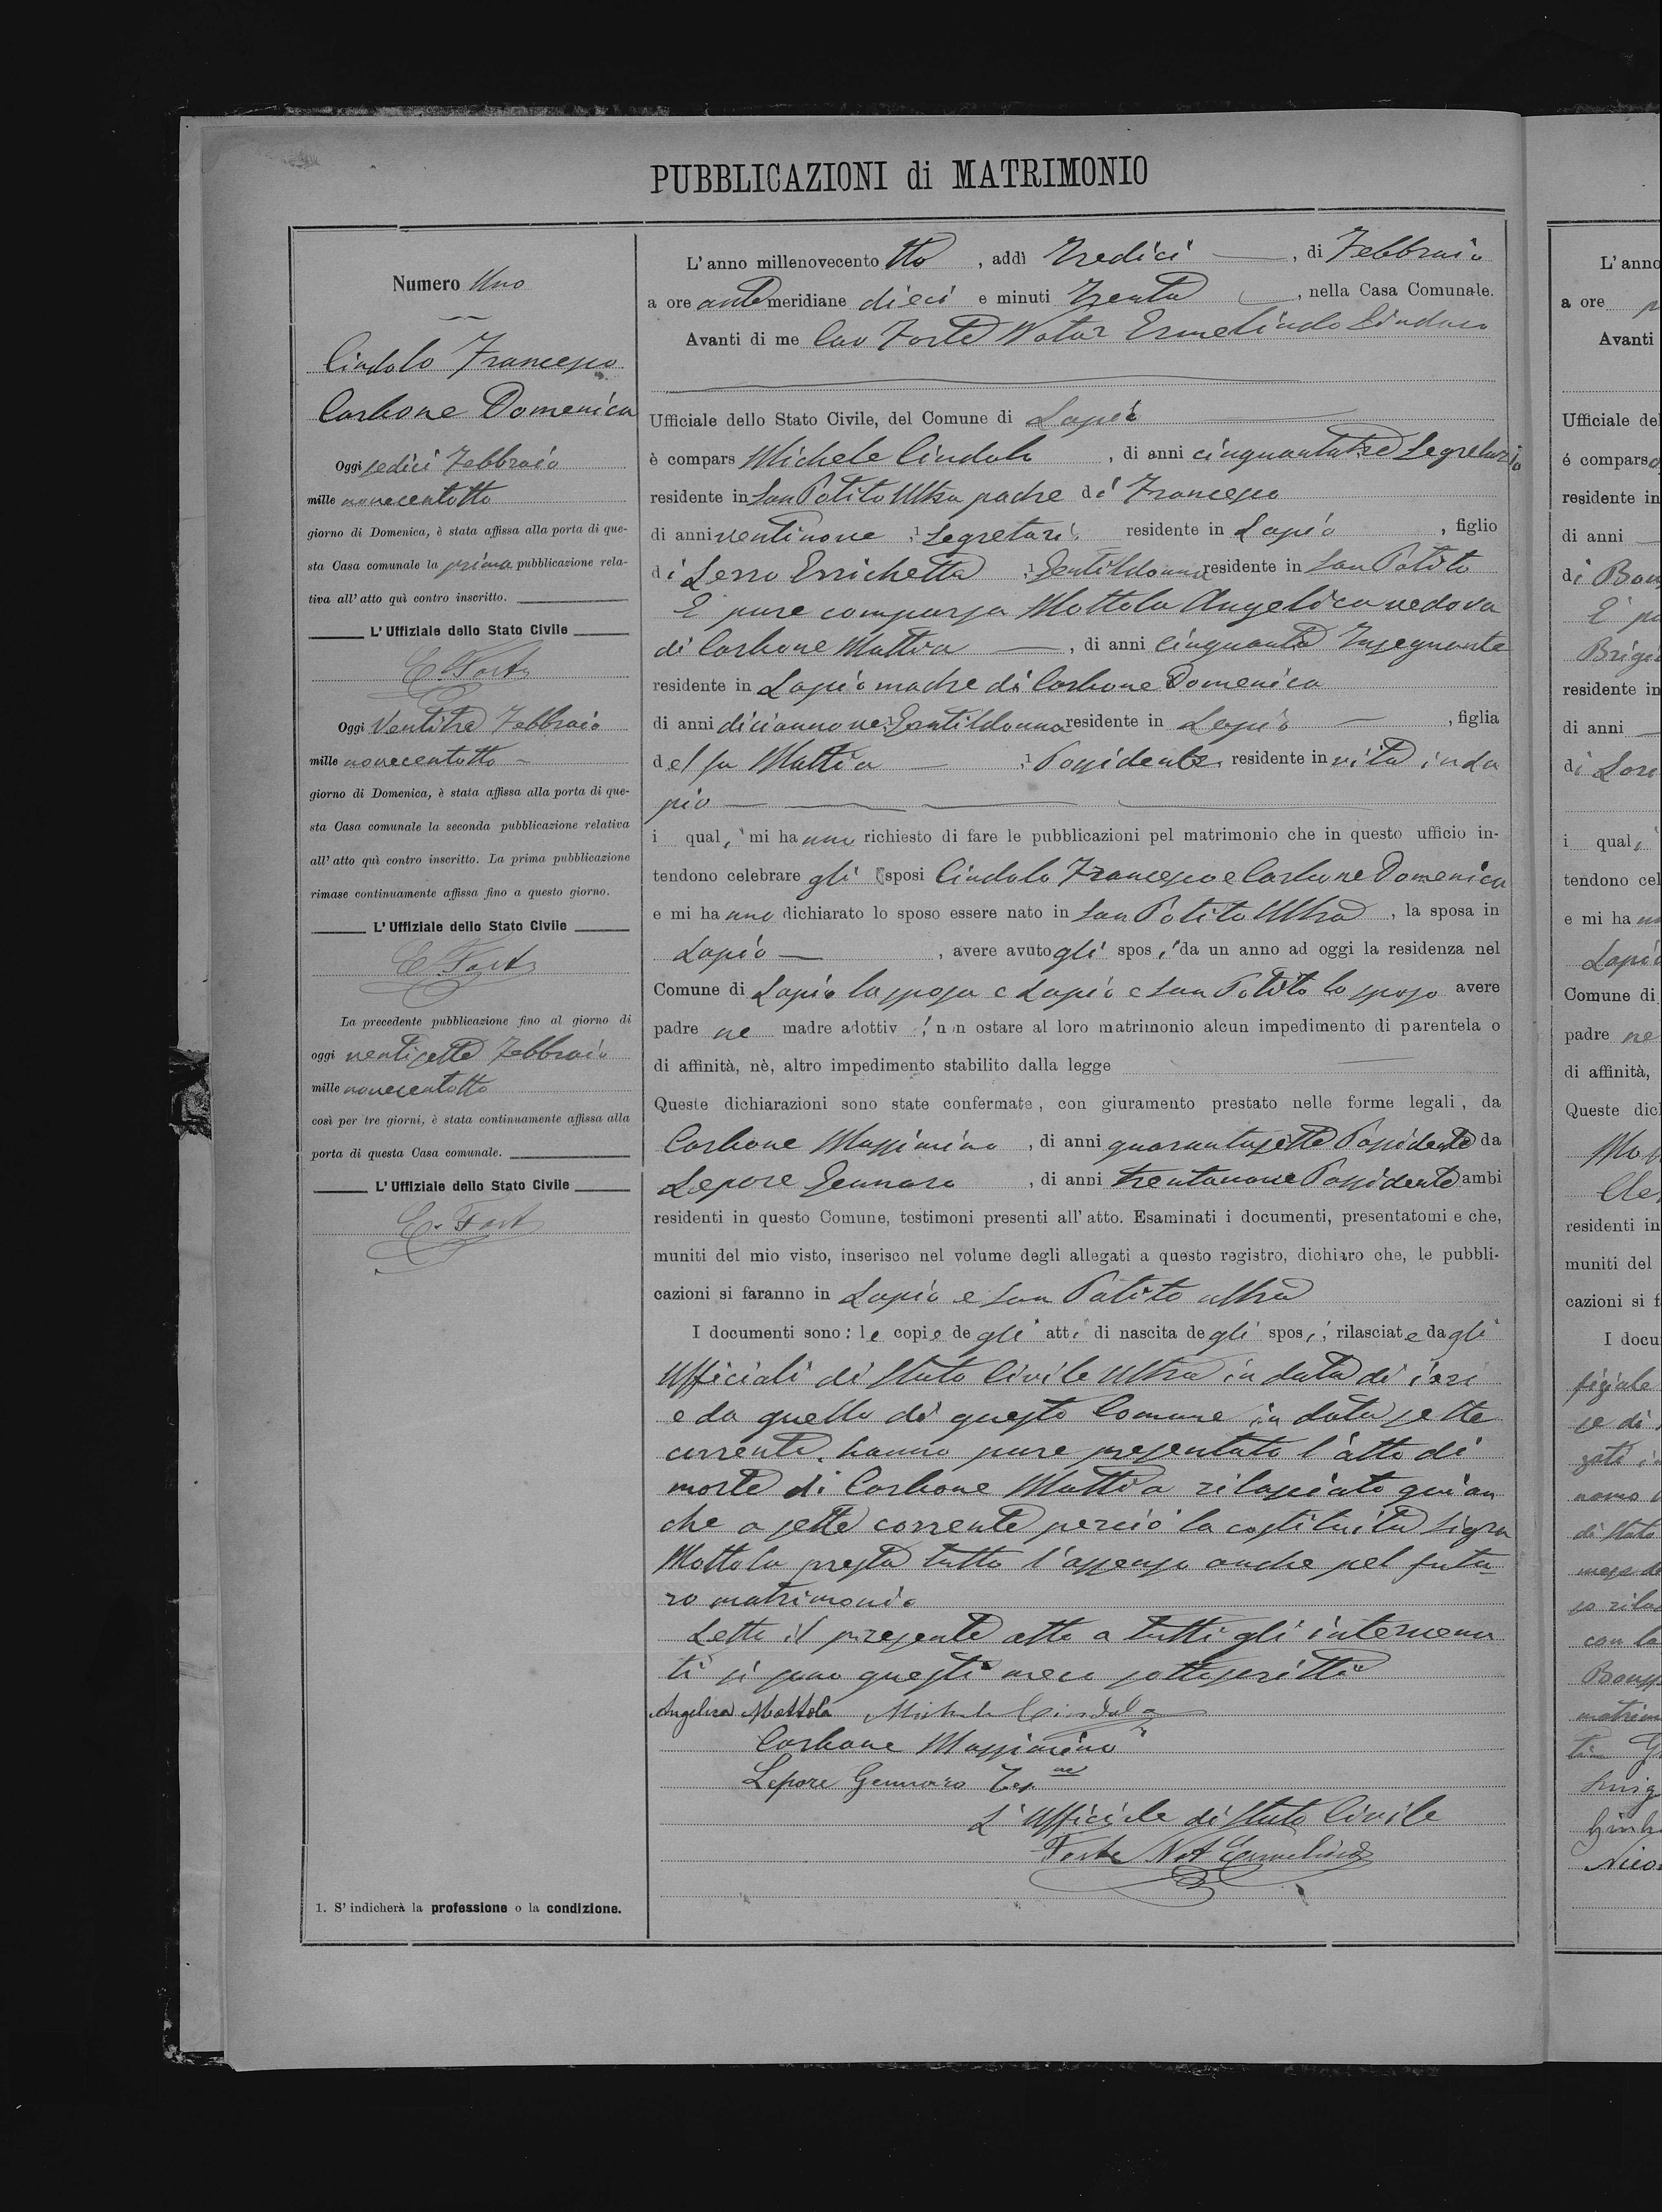 PUBBLICAZIONI di MATRIMONIO
Numero Uno
Cindolo Francesco
Carbone Domenica
Oggi sedici Febbraio
mille novecentotto
giorno di Domenica, è stata affissa alla porta di que-
sta Casa comunale la prima pubblicazione rela-
tiva all' atto quì contro inscritto.
L' Uffiziale dello Stato Civile
E. Forte
Oggi Ventitre Febbraio
mille novecentotto
giorno di Domenica, è stata affissa alla porta di que-
sta Casa comunale la seconda pubblicazione relativa
all' atto quì contro inscritto. La prima pubblicazione
rimase continuamente affissa fino a questo giorno.
L' Uffiziale dello Stato Civile
E. Forte
La precedente pubblicazione fino al giorno di
oggi ventisette Febbraio
mille novecentotto
così per tre giorni, è stata continuamente affissa alla
porta di questa Casa comunale.
L' Uffiziale dello Stato Civile
E. Forte
1. S' indicherà la professione o la condizione.
L' anno millenovecento tto , addì Tredici , di Febbraio
a ore antemeridiane dieci e minuti Trenta , nella Casa Comunale.
Avanti di me Cav Forte Notar Ermelindo Sindaco
Ufficiale dello Stato Civile, del Comune di Lapio
è compars Michele Cindolo , di anni cinquantatre Segretario
residente in San Potito Ultra padre di Francesco
di anni ventinove , 1 Segretari residente in Lapio , figlio
di Serro Errichetta , 1 Gentildonna residente in San Potito
E pure comparsa Mottola Angelica vedova
di Carbone Mattia , di anni cinquanta Insegnante
residente in Lapio madre di Carbone Domenica
di anni diciannove , 1 Gentildonna residente in Lapio , figlia
del fu Mattia , 1 Possidente residente in vita in La
pio
i quali mi hanno richiesto di fare le pubblicazioni pel matrimonio che in questo ufficio in-
tendono celebrare gli sposi Cindolo Francesco e Carbone Domenica
e mi hanno dichiarato lo sposo essere nato in San Potito Ultra , la sposa in
Lapio , avere avuto gli sposi da un anno ad oggi la residenza nel
Comune di Lapio la sposa e Lapio e San Potito lo sposo avere
padre ne madre adottiv , non ostare al loro matrimonio alcun impedimento di parentela o
di affinità, nè, altro impedimento stabilito dalla legge
Queste dichiarazioni sono state confermate, con giuramento prestato nelle forme legali, da
Carbone Massimino , di anni quarantasette Possidente da
Lepore Gennaro , di anni trentanove Possidente ambi
residenti in questo Comune, testimoni presenti all' atto. Esaminati i documenti, presentatomi e che,
muniti del mio visto, inserisco nel volume degli allegati a questo registro, dichiaro che, le pubbli-
cazioni si faranno in Lapio e San Potito ultra
I documenti sono: le copie degli atti di nascita degli sposi, rilasciate dagli
Ufficiali di Stato Civile Ultra in data di ieri
e da quello di questo Comune in data sette
corrente. hanno pure presentato l'atto di
morte di Carbone Mattia rilasciato qui an
che a sette corrente perciò la costituita Sigra
Mottola presta tutto l'assenso anche pel futu-
ro matrimonio
Letto il presente atto a tutti gli intervenu
ti si sono questi meco sottoscritti
Angelica Mottola Michele Cindolo
Carbone Massimino
Lepore Gennaro Tes.ne
L'Ufficiale di Stato Civile
Forte Not Ermelindo
L' anno
a ore
Avanti
Ufficiale del
é comparso
residente in
di anni
di
E pu
Brigi
residente in
di anni
di
i quali
tendono cel
e mi ha
Lapio
Comune di
padre ne
di affinità,
Queste dic
residenti in
muniti del
cazioni si f
I docu
di Stato
con la
matrim